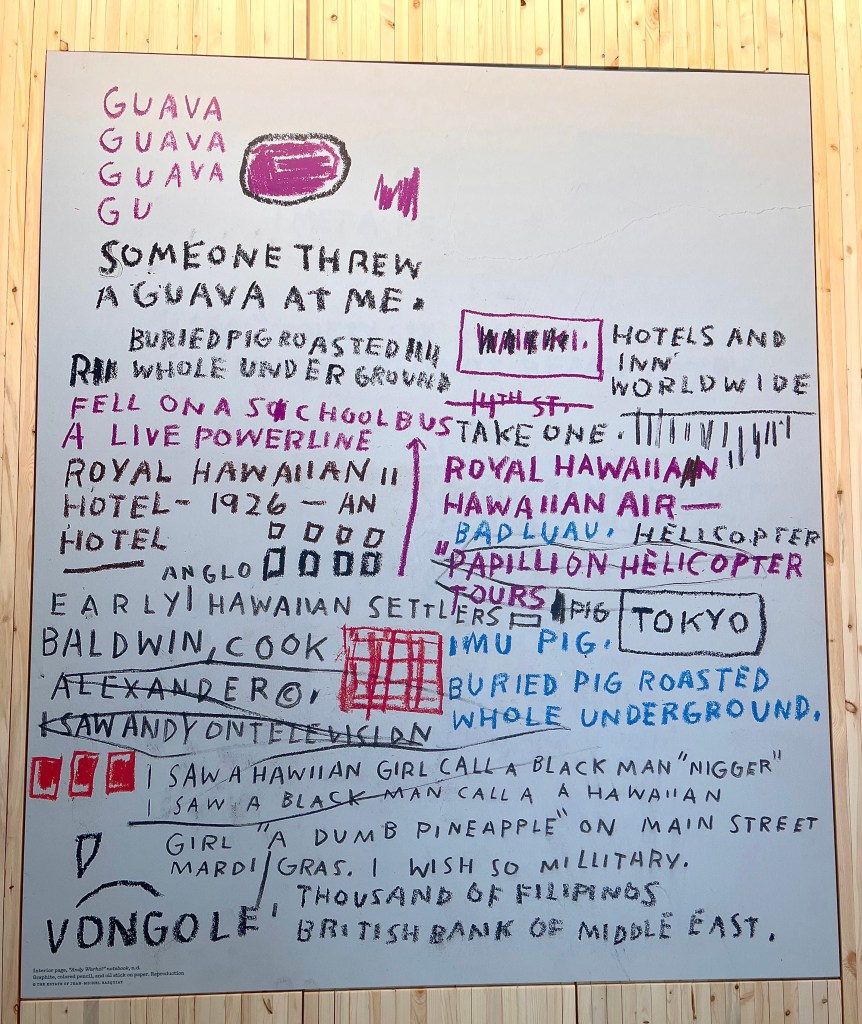 GUAVA
GUAVA
GUAVA
GU
SOMEONE THREW
A GUAVA AT ME.
BURIED PIG ROASTED
WHOLE UNDERGROUND
FELL ON A SCHOOLBUS
A LIVE POWERLINE
ROYAL HAWAIIAN
HOTEL - 1926 - AN
HOTEL
ANGLO
WAIKIKI.
HOTELS AND
INN'
WORLDWIDE
14TH ST.
TAKE ONE.
ROYAL HAWAIIAN
HAWAIIAN AIR—
BAD LUAU. HELICOPTER
"PAPILLION HELICOPTER
TOURS
PIG
TOKYO
EARLY HAWAIIAN SETTLERS
BALDWIN, COOK
ALEXANDER ©.
I SAW ANDY ON TELEVISION
IMU PIG.
BURIED PIG ROASTED
WHOLE UNDERGROUND.
I SAW A HAWIIAN GIRL CALL A BLACK MAN "NIGGER"
I SAW A BLACK MAN CALL A A HAWAIIAN
GIRL "A DUMB PINEAPPLE" ON MAIN STREET
MARDI GRAS. I WISH SO MILLITARY.
THOUSAND OF FILIPINOS
VONGOLE' BRITISH BANK OF MIDDLE EAST.
Interior page, "Andy Warhol" notebook, n.d.
Graphite, colored pencil, and oil stick on paper. Reproduction
© THE ESTATE OF JEAN-MICHEL BASQUIAT